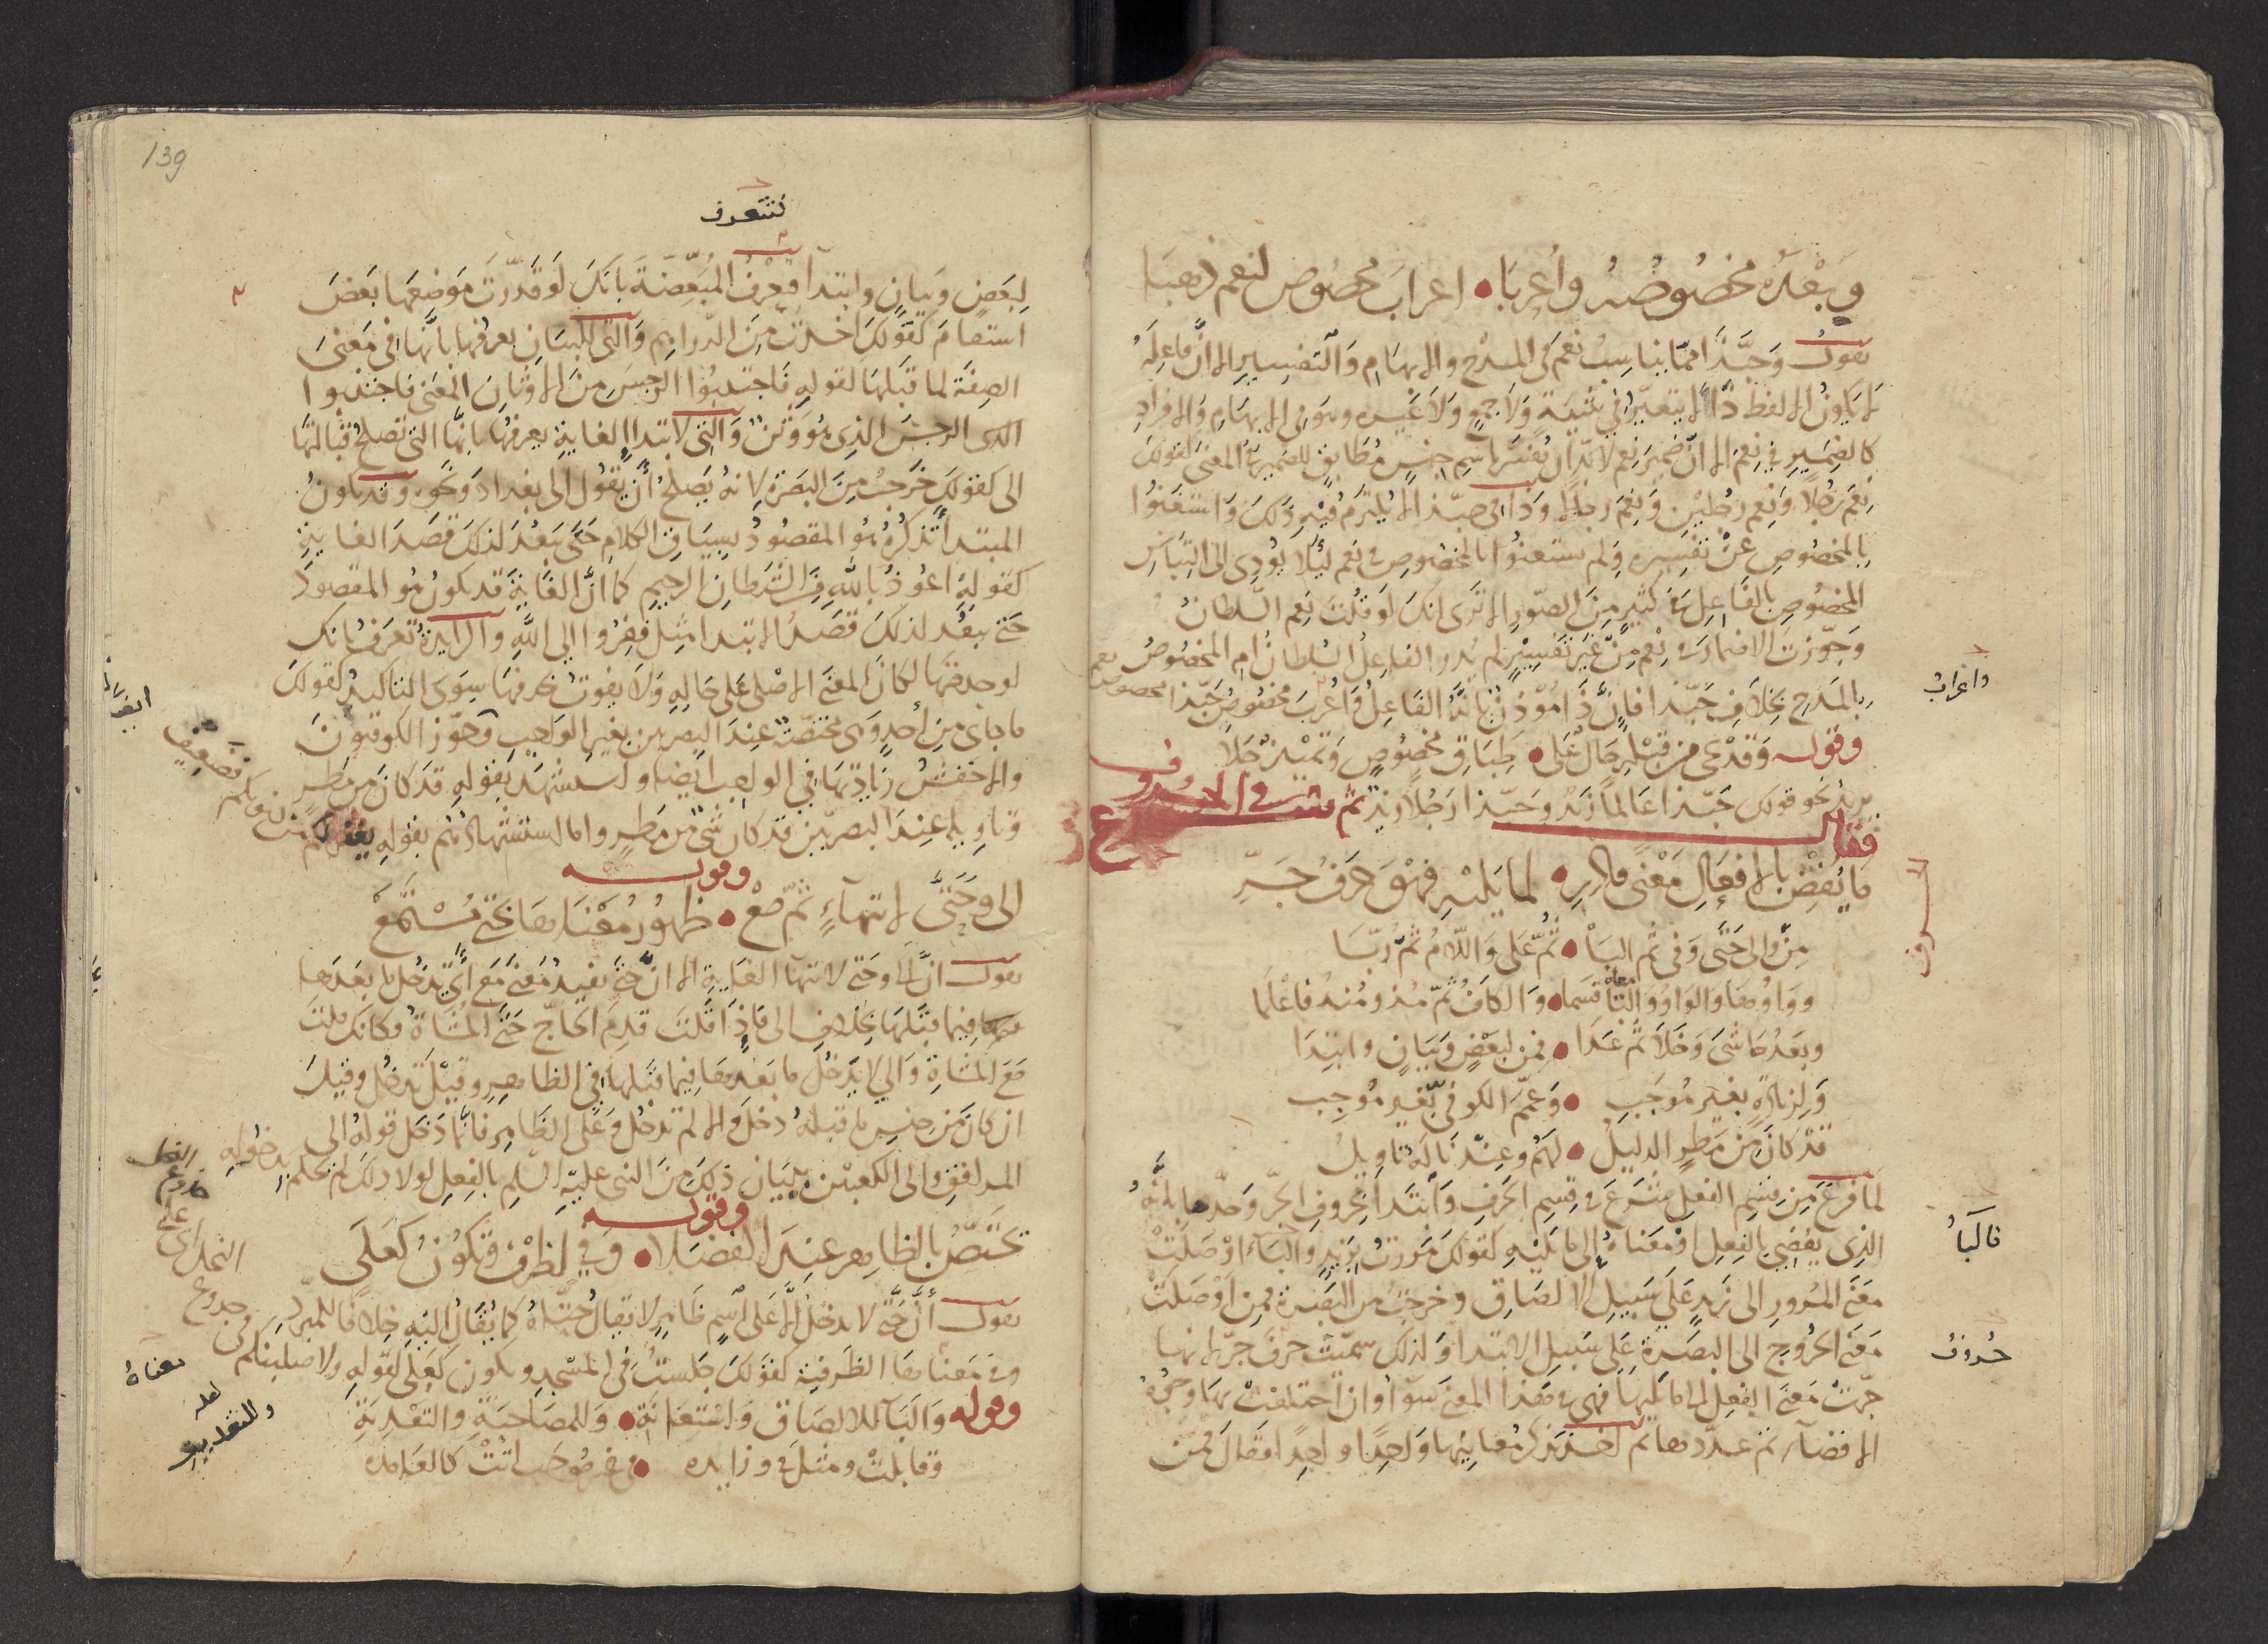 وَبَعْدَهُ مَخْصُوصُهُ وَأُعْرِبَا • اعراب مخصوص لنعم ذهبا
يقول وَحَبَّذا مما يناسب نعم في المدح والابهام والتفسير الا ان فاعله
لا يكون الا لفظ ذا لا يتغير في تثنية ولا جمع ولا غيره وهو في الابهام والافراد
كالضمير في نعم الا ان ضمير نعم لا بد ان يفسر باسم جنس مطابق للضمير في المعنى كقولك
نعم رجلا ونعم رجلين ونعم رجالا وذا في حبذا لا يلتزم فيه ذلك واستغنوا
بالمخصوص عن تفسيره ولم يستغنوا بالمخصوص في نعم ليلا يؤدى الى التباس
المخصوص بالفاعل في كثير من الصور الا ترى انك لو قلت نعم السلطان
وجوزت الاضمار في نعم من غير تفسير لم يدر الفاعل السلطان ام المخصوص
بالمدح بخلاف حبذا فان ذا مؤذن بانه الفاعل واعرب مخصوص حبذا
واعراب
وقوله وقد يجى من قبل حال على • طباق مخصوص وتمييز جلا
يريد نحو قولك حبذا عالما زيد وحبذا رجلا زيد ثم
فقال
ما يفض بالافعال معنى • لما يليه فهو حرف جر
من والى حتى وفي ثم البا • ثم على واللام ثم ربا
وواوها والواو والتا قسما • والكاف ثم مذ ومنذ فاعلما
وبعد حاشى وخلا ثم عدا • فمن لبعض وبيان وابتدا
ولزيادة بغير موجب • وعمم الكوفي بغير موجب
قد كان من مطر الدليل • لهم وعندنا له تاويل
لما فرغ من قسم الفعل شرع في قسم الحرف وابتدا بحروف الجر وحدها بانه
الذى يفضى بالفعل او معناه الى ما يليه كقولك مررت بزيد والباء اوصلت
فالبا
معنى المرور الى زيد على سبيل الالصاق وخرجت من البصرة فمن اوصلت
معنى الخروج الى البصرة على سبيل الابتدا ولذلك سميت حرف جر لانها
حروف
جرت معنى الفعل الى ما يليها فهي في هذا المعنى سوا وان اختلفت بها وجوه
الافضاء ثم عددها ثم اخذ يذكر معانيها واحدا واحدا فقال فمن
139
تتعرف
لبعض وبيان وابتدا فتعرف المبعضة بانك لو قدرت موضعها بعض
استقام كقولك اخذت من الدراهم والتى للبيان يعرفها بانها في معنى
الصفة لما قبلها لقوله فاجتنبوا الرجس من الاوثان المعنى فاجتنبوا
الرجس الذى هو وثن والتى لابتداء الغاية يعرفها بانها التى تصلح قبالتها
الى كقولك خرجت من البصرة لانه يصلح ان يقول الى بغداد ونحوه وقد يكون
المبتدا تذكره هو المقصود بسياق الكلام حتى يبعد لذلك قصد الغاية
كقوله اعوذ بالله من الشيطان الرجيم كما ان الغاية قد يكون هو المقصود
حتى يبعد لذلك قصد الابتدا مثل ففروا الى الله والزايدة تعرف بانك
لو حذفتها لكان المعنى الاصلى على حاله ولا يفوت بحذفها سوى التاكيد كقولك
ما جاى من احد وهى مختصة عند البصريين بغير الواجب وجوز الكوفيون
والاخفش زيادتها في الواجب ايضا واستشهد بقوله قد كان من مطر
وتاويله عند البصريين قد كان شى من مطر واما استشهادهم بقوله يغفر لكم من ذنوبكم
فضعيف
وقوله
الى وحتى لانتهاء ثم مع • ظهور معناها بحتى مستمع
يقول ان الى وحتى لانتهاء الغاية الا ان حتى يفيد معنى مع اى يدخل ما بعدها
فيما قبلها بخلاف الى فاذا قلت قدم الحاج حتى المشاة فكانك قلت
مع المشاة والى لا يدخل ما بعدها فيما قبلها في الظاهر وقيل تدخل وقيل
ان كان من جنس ما قبله دخل والا لم تدخل وعلى الظاهر فانما دخل قوله الى
المرافق والى الكعبين ببيان ذلك من النبى عليه السلم بالفعل لولا ذلك لم يحكم بدخوله
وقوله
تختص بالظاهر عند الفضلا • وفي لظرف وتكون كعلى
يقول ان حتى لا يدخل الا على اسم ظاهر لا يقال حتاه كما يقال اليه خلافا للمبرد
وفي معناها الظرفية كقولك جلست في المسجد ويكون كعلى لقوله ولاصلبنكم في
جذوع
النخل اى على
معناه
وقوله والبآ للالصاق واستعانة • وللمصاحبة والتعدية
وقابلت ومثل في وزايده •